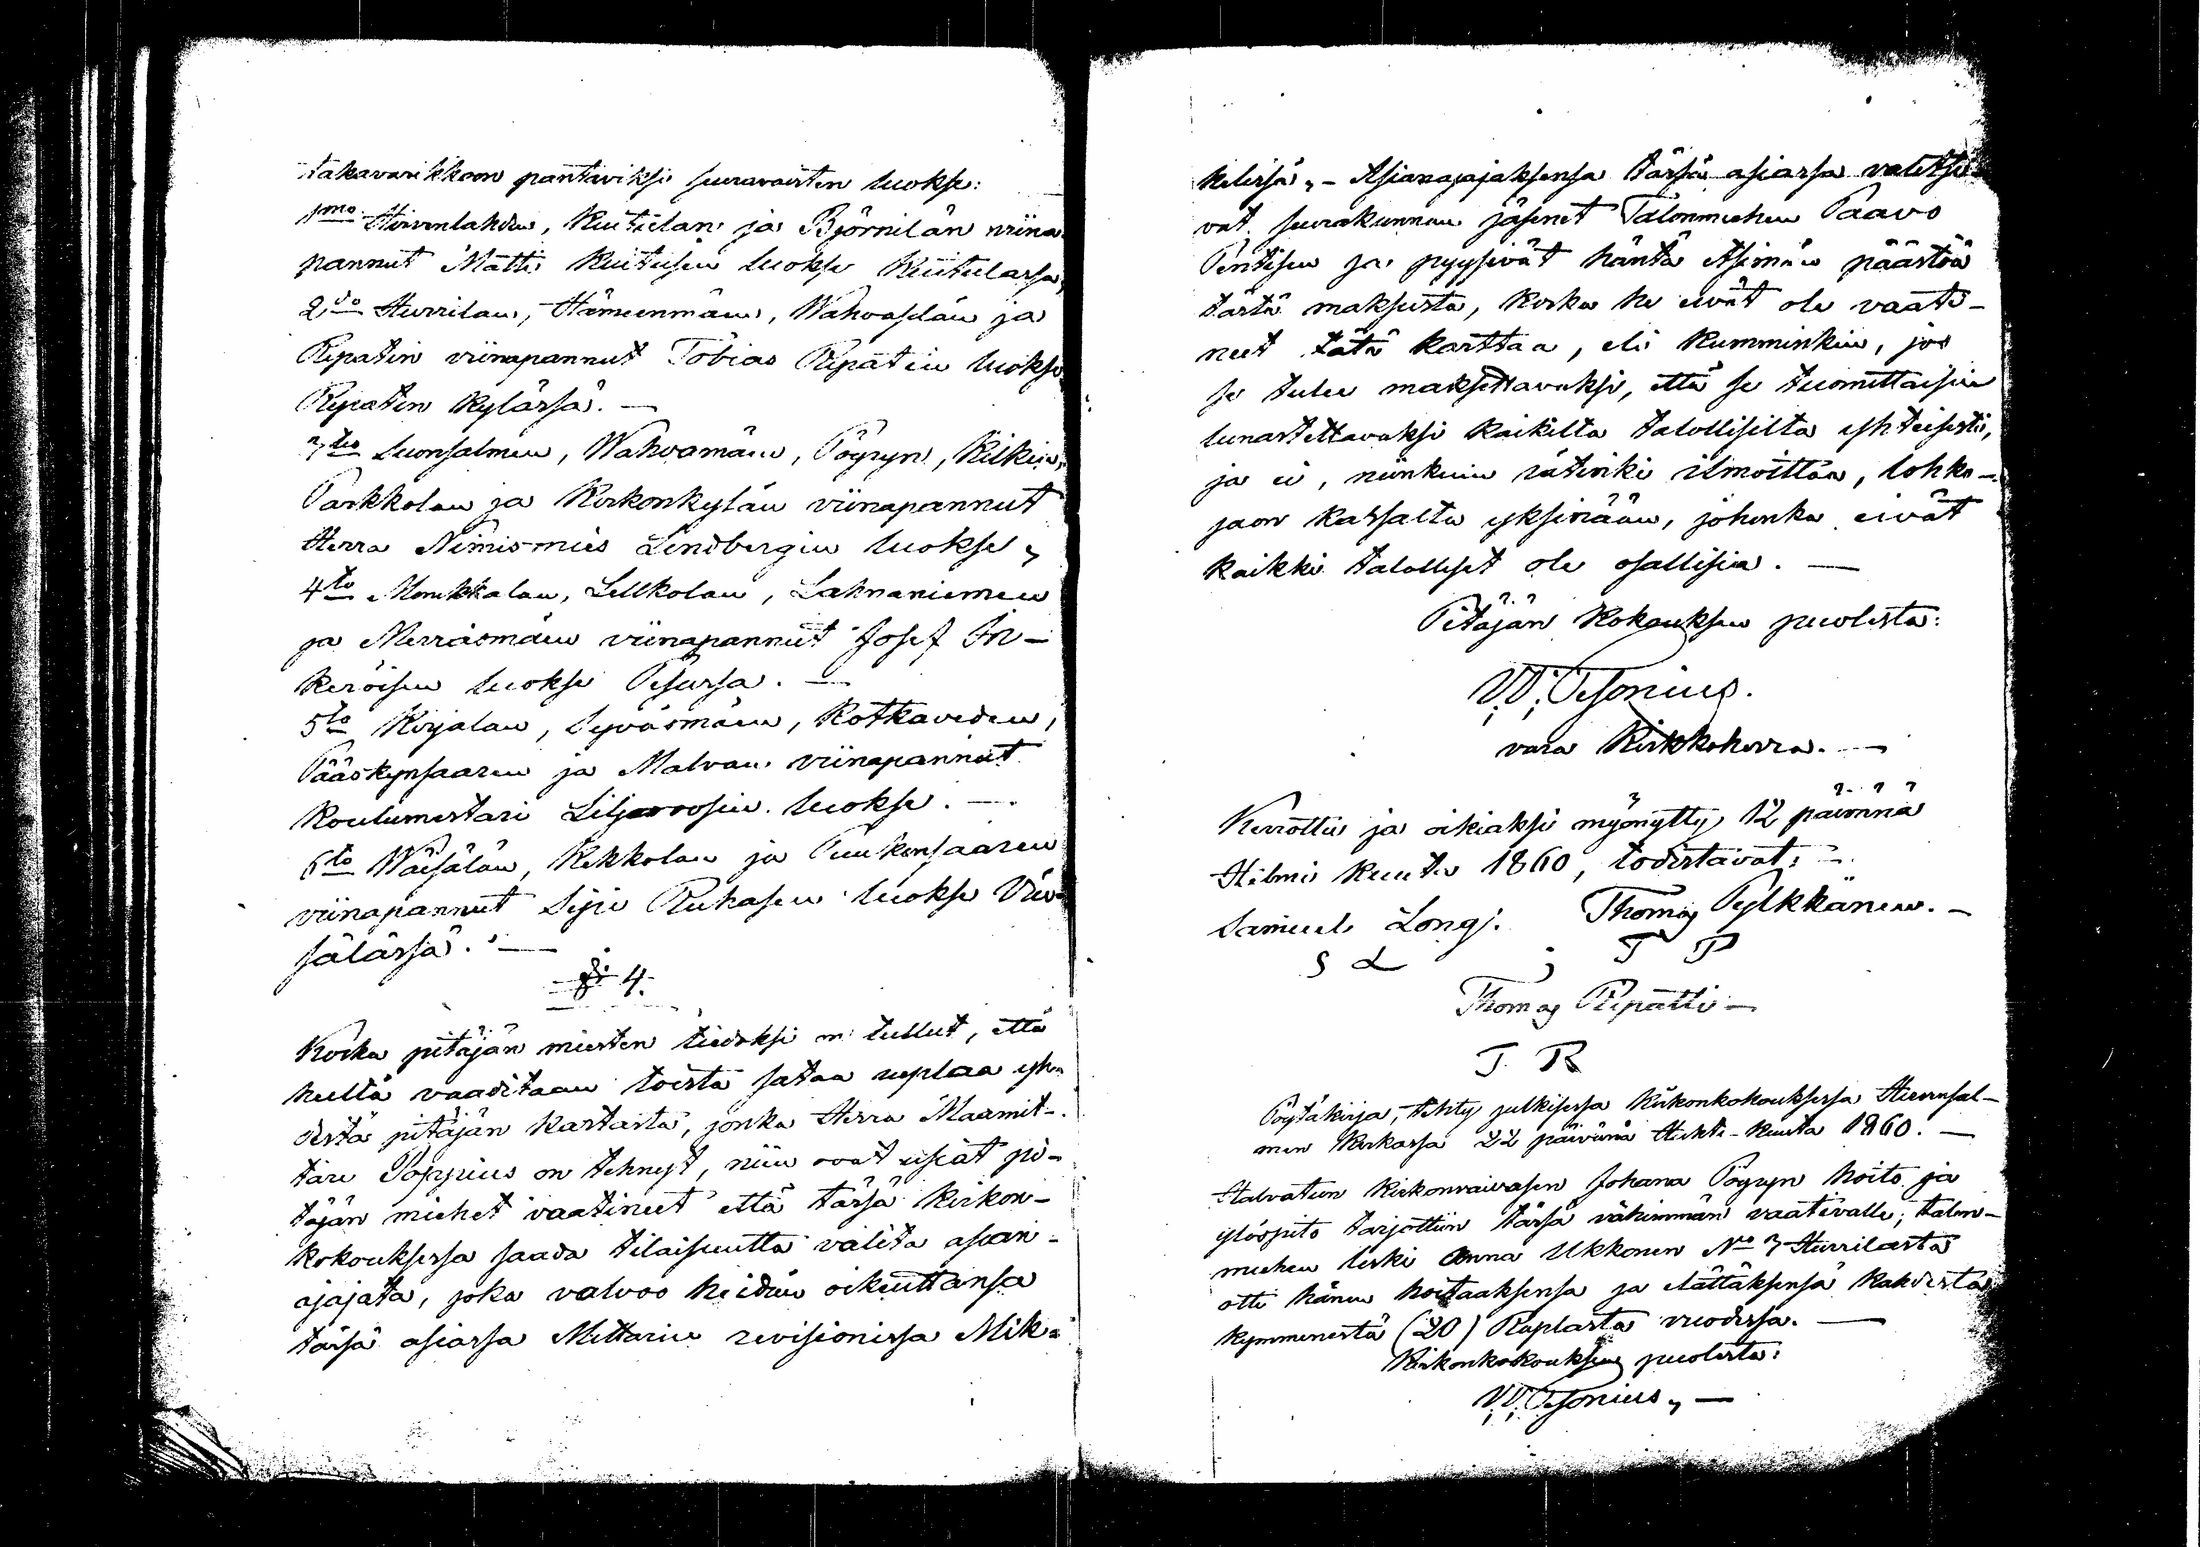 takavarikkoon pantaviksi seuravaisten luokse:
1mo Hirvenlahden, Kuitulan ja Björnilän viina
pannut Matti Kuitusen luokse Kuitulassa,
2do Hurrilan, Hämeenmäen, Wahvaselän ja
Ripatin viinapannut Tobias Ripatin luokse
Ripatin kylässä. —
3tio Luonsalmen, Wahvamäen, Pöyryn, Kilkin,
Parkkolan ja Kirkonkylän viinapannut
Herra Nimismies Lindbergin luokse,
4to Monikkalan, Lellkolan, Lahnaniemen
ja Merrasmäen viinapannut Josef In-
keröisen luokse Pesursa. —
5to Kirjalan, Syväsmäen, Kotkaveden,
Pääskynsaaren ja Malvan viinapannut
Koulumestari Liljeroosin luokse. —
6to Wäisälän, Kekkolan ja Puukonsaaren
viinapannut Sipi Ruhasen luokse Väi-
sälässä. —
§ 4.
Koska pitäjän miesten tiedoksi on tullut, että
heiltä vaaditaan toista sataa ruplaa yh-
destä pitäjän kartasta, jonka Herra Maamit-
tari Poppius on tehnyt, niin ovat useat pi-
täjän miehet vaatineet että tässä kirkon-
kokouksessa saada tilaisuutta valita asian-
ajajata, joka valvoo heidän oikeuttansa
tässä asiassa Mittarin revisionissa Mik-
kelissä, - Asianajajaksensa tässä asiassa valitsi-
vat seurakunnan jäsenet Talonmiehen Paavo
Pentisen ja pyysivät häntä etsimän päästöä
tästä maksusta, koska he eivät ole vaati-
neet tätä karttaa, eli kumminkin, jos
se tulee maksettavaksi, että se tuomittaisiin
lunastettavaksi kaikilta talollisilta yhteisesti,
ja ei, niinkuin rätinki ilmoittaa, lohko-
jaon kassalta yksinään, johonka eivät
kaikki talolliset ole osallisia. —
Pitäjän kokouksen puolesta:
W. Pesonius.
vara Kirkkoherra. —
Kerrottu ja oikiaksi myönytty 12 päivänä
Helmi kuuta 1860, todistavat:
Samuel Longi. Thomas Pylkkänen. —
S L ; T P
Thomas Ripatti —
T. R
Pöytäkirja, tehty julkisessa kirkonkokouksessa Hirvensal-
men kirkossa 22 päivänä Huhti-kuuta 1860. —
Halvatun kirkonvaivasen Johana Pöyryn hoito ja
ylöspito tarjottiin tässä vähimmän vaativalle; talon-
miehen leski Anna Ukkonen No 3 Hurrilasta
otti hänen hoitaaksensa ja elättäksensä kahdesta
kymmenestä (20) Ruplasta vuodessa. —
Kirkonkokouksen puolesta:
W. Pesonius, —